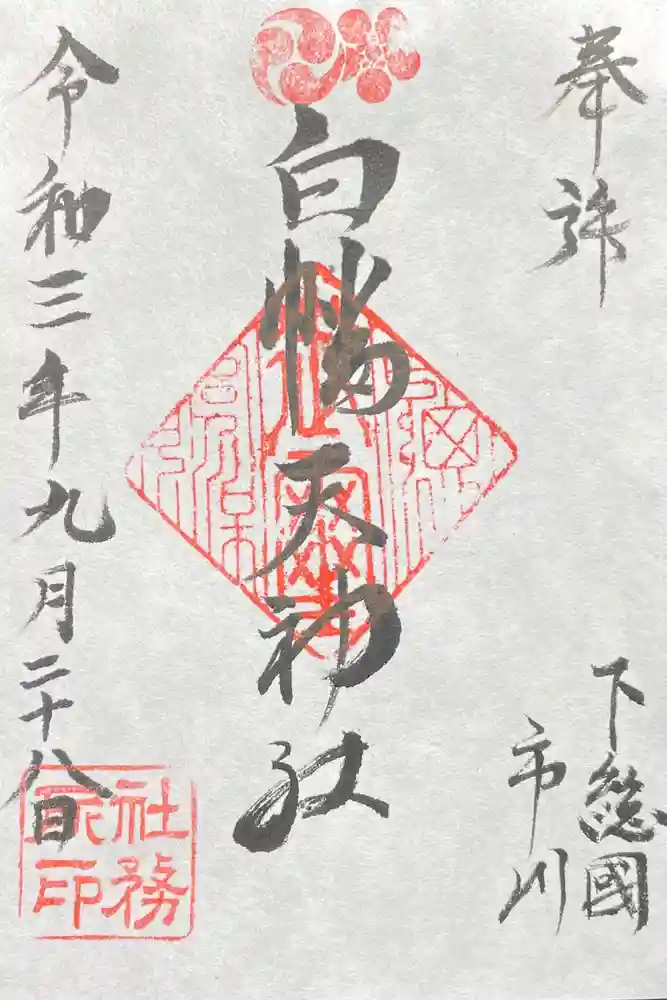 奉拝
下総國
市川
白幡天神社
令和三年九月二十八日
社務
所印